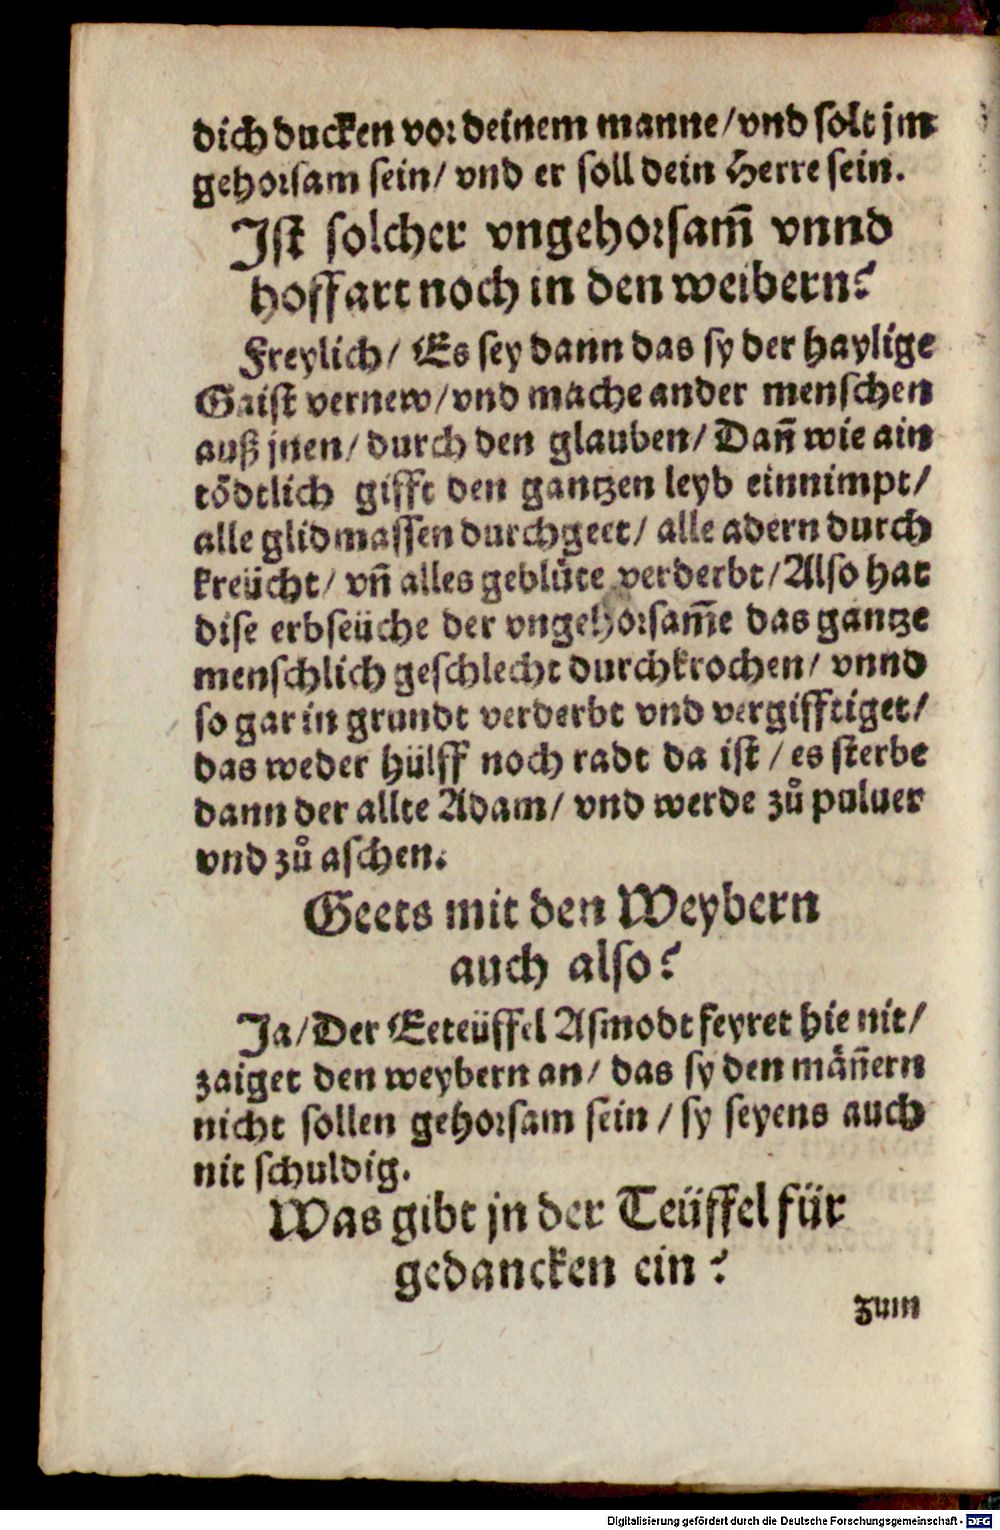 dich ducken vor deinem manne/vnd solt jm
gehorsam sein/ vnd er soll dein Herre sein.
Jst solcher vngehorsam̄ vnnd
hoffart noch in den weibern?
Freylich/ Es sey dann das sy der haylige
Gaist vernew/vnd mache ander menschen
auß jnen/ durch den glauben/ Dañ wie ain
tödtlich gifft den gantzen leyb einnimpt/
alle glidmassen durchgeet/ alle adern durch
kreücht/ vñ alles geblüte verderbt/Also hat
dise erbseüche der vngehorsam̄e das gantze
menschlich geschlecht durchkrochen/ vnnd
so gar in grundt verderbt vnd vergifftiget/
das weder hülff noch radt da ist/ es sterbe
dann der allte Adam/ vnd werde zů puluer
vnd zů aschen.
Geets mit den Weybern
auch also?
Ja/Der Eeteüffel Asmodt feyret hie nit/
zaiget den weybern an/ das sy den mäñern
nicht sollen gehorsam sein/ sy seyens auch
nit schuldig.
Was gibt jn der Teüffel für
gedancken ein?
zum
Digitalisierung gefördert durch die Deutsche Forschungsgemeinschaft - DFG